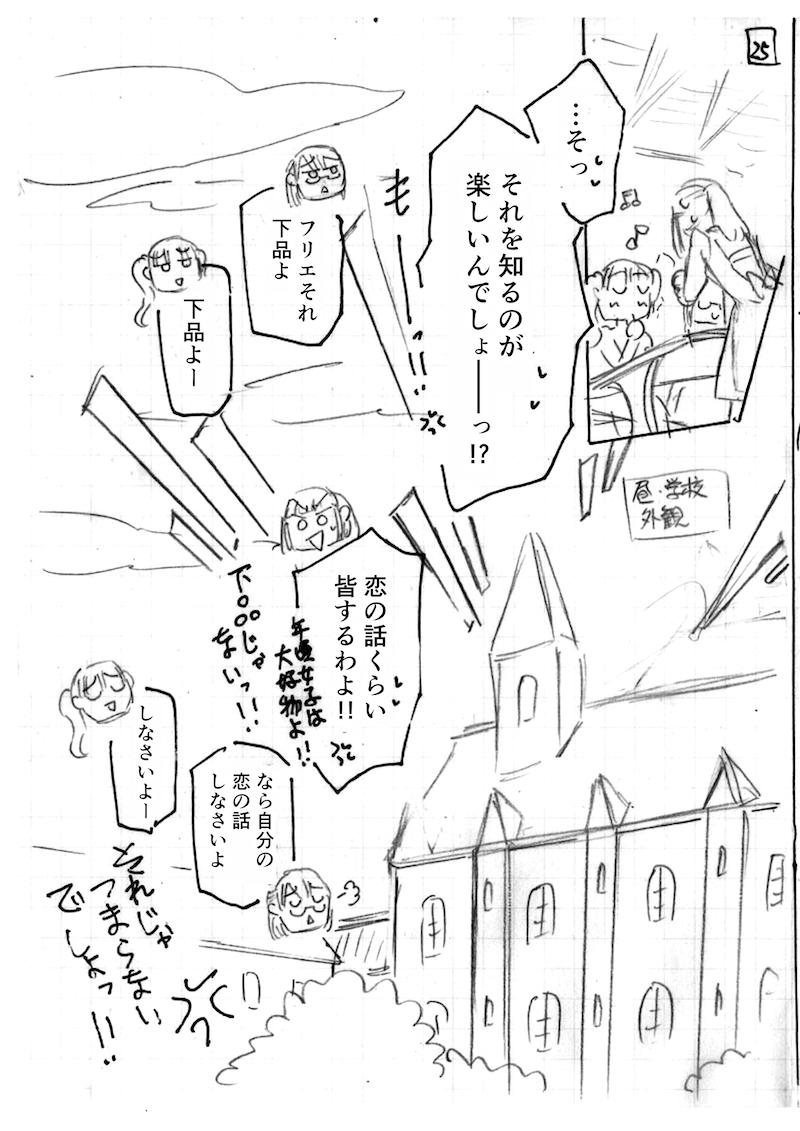 25
…そっ
それを知るのが
楽しいんでしょ――っ!?
昼・学校
外観
も――っ!!
フリエそれ
下品よ
下品よー
恋の話くらい
皆するわよ!!
年頃女子は
大好物よ!!
下品じゃ
ないっ!!
なら自分の
恋の話
しなさいよ
しなさいよー
それじゃ
つまらない
でしょっ!!